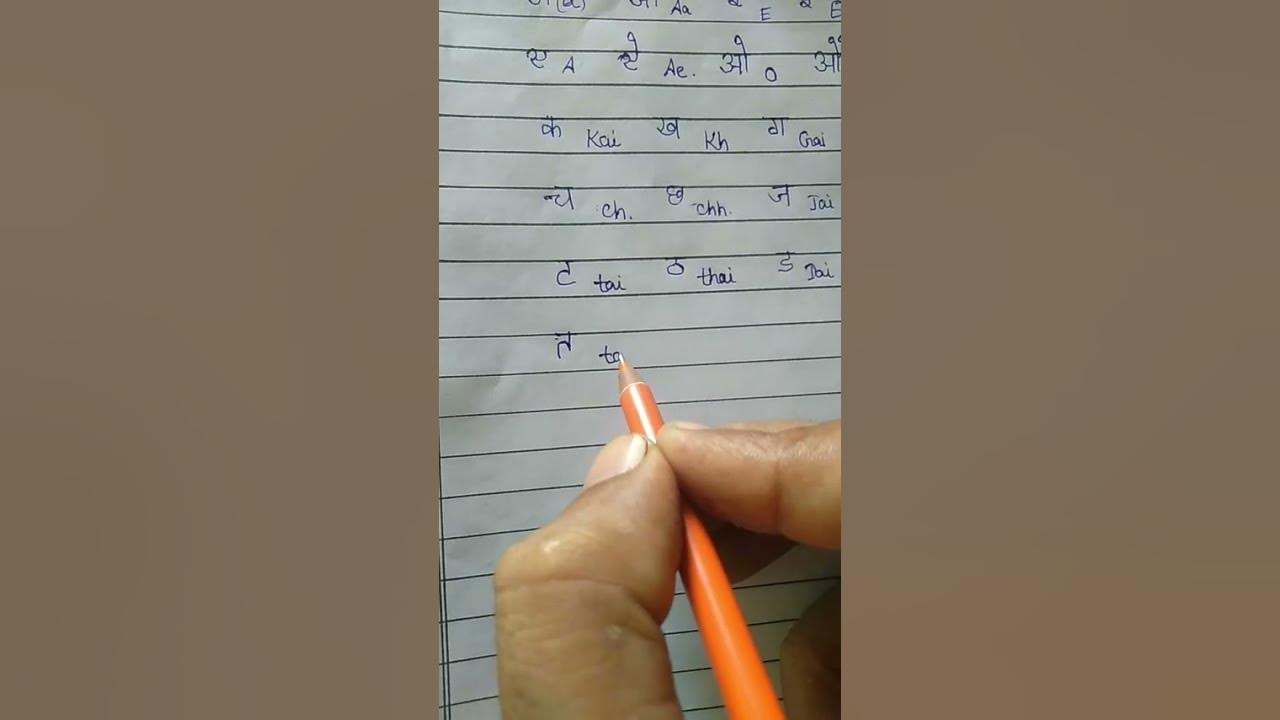 अ(a) आ Aa इ E ई E
ए A ऐ Ae. ओ O औ
क Kai ख Kh ग Gai
च ch. छ chh. ज Jai
ट tai ठ thai ड Dai
त ta